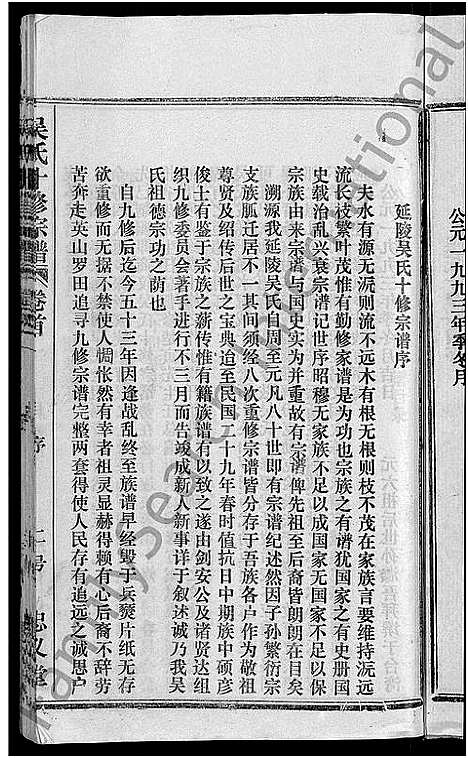 公元一九九三年季冬月
延陵吴氏十修宗谱序
夫水有源无沅则流不远木有根无根则枝不茂在家族言要维持沅远
流长枝繁叶茂惟有勤修家谱是为功也宗族之有谱犹国家之有史册国
史载治乱兴衰宗谱记世序昭穆无家族不足以成国家无国家不足以保
宗族由来宗谱与国史实为并重故有宗谱俾先祖至后裔皆朗朗在目矣
溯源我延陵吴氏自周至元凡八十世即有宗谱纪述然因子孙繁衍宗
支族胍迁居不一其间须经八次重修宗谱皆分存于吾族各户作为敬祖
尊贤及绍传后世之宝典迨至民国二十九年春时值抗日中期族中硕彦
俊士有鉴于宗族之薪传惟有籍族谱有以致之遂由剑安公及诸贤达组
织九修委员会著手进行不三月而告竣成新人新事详于叙述诚乃我吴
氏祖德宗功之荫也
自九修后迄今五十三年因逢战乱终至族谱早经毁于兵燹片纸无存
欲重修而无据不禁使人惆怅然有幸者祖灵显赫得赖有心后裔不辞劳
苦奔走英山罗田追寻九修宗谱完整两套得使人民存有追远之诚思户
吴氏十修宗谱
卷首
序
二号
忠义堂
familysearch international